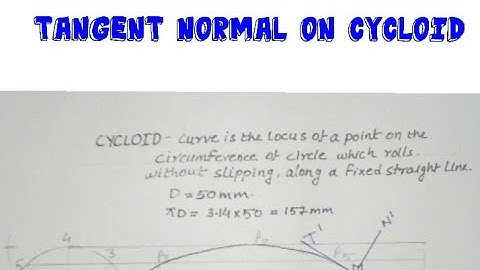 TANGENT NORMAL ON CYCLOID
CYCLOID - Curve is the locus of a point on the
circumference of circle which rolls.
without slipping, along a fixed straight line.
D = 50mm.
πD = 3.14 x 50 = 157mm
T' N'
4 3 P5
5